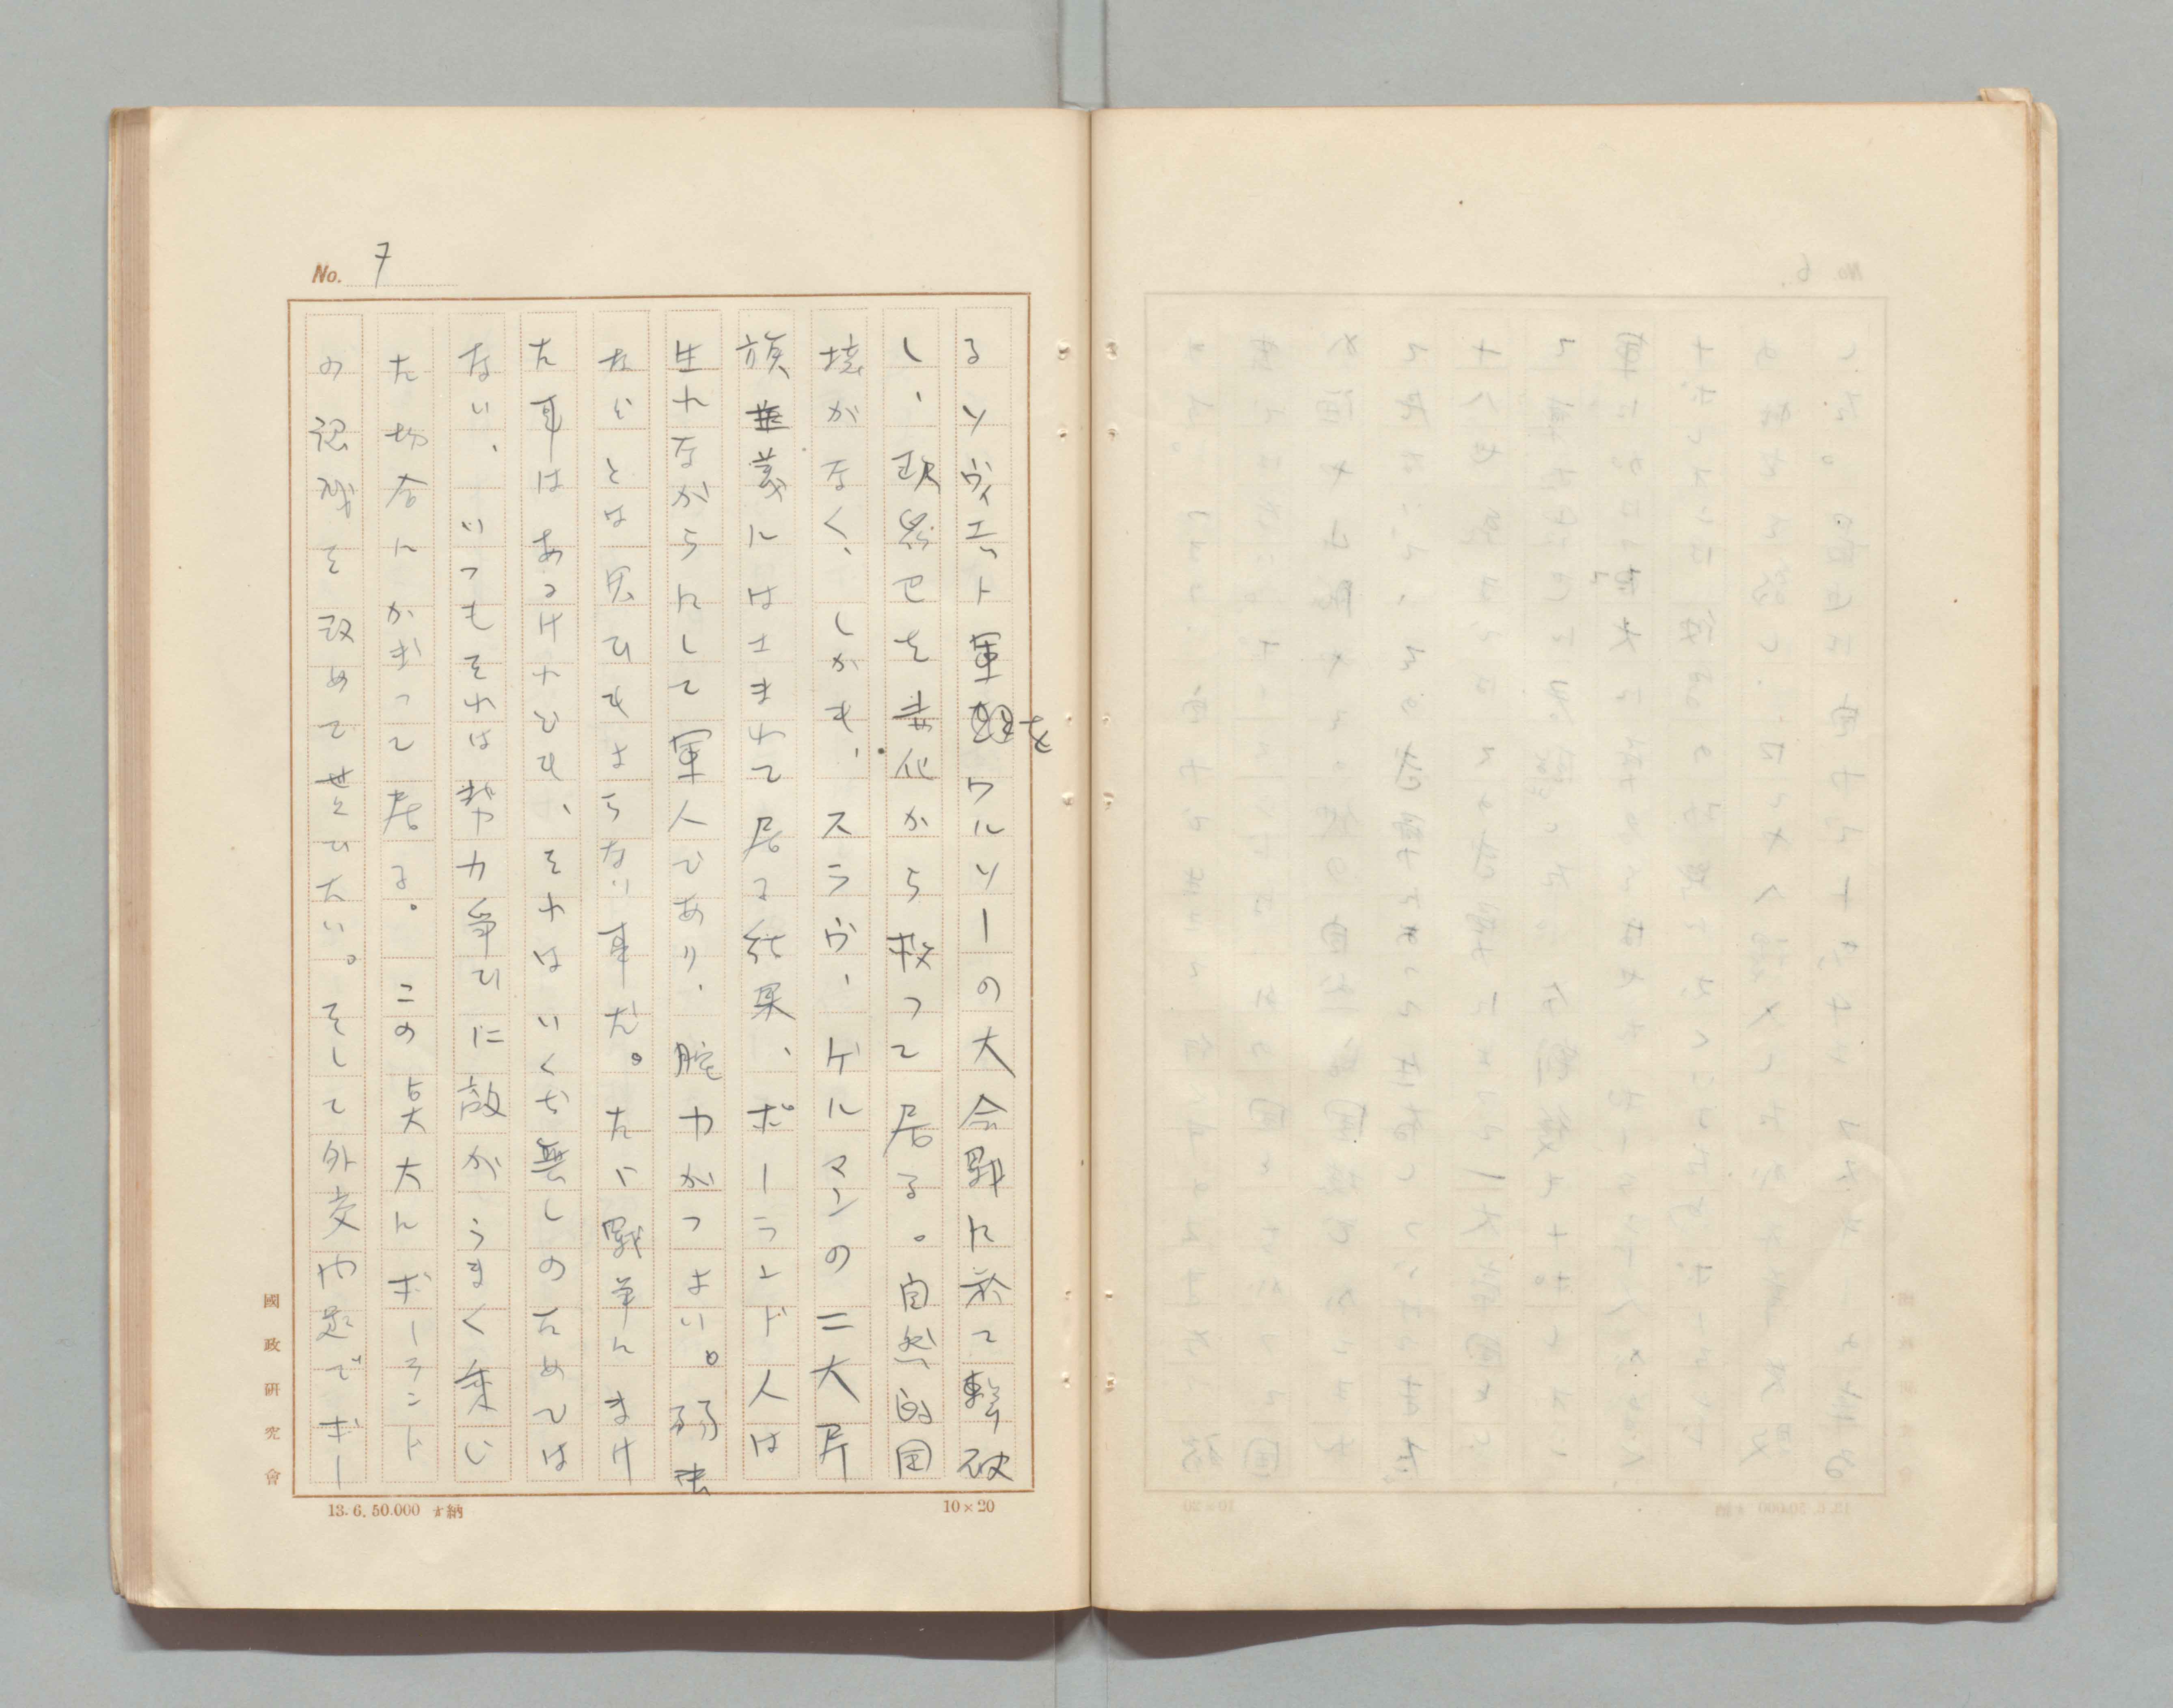 No. 7
るソヴィエット軍をワルソーの大会戦に於て撃破
し、欧州を赤化から救って居る。自然的国
境がなく、しかも、スラヴ、ゲルマンの二大民
族主義にはさまれて居る結果、ポーランド人は
生れながらにして軍人であり、腕力がつよい。弱虫
などとは思ひもよらない事だ。たゞ戦争にまけ
た事はあるけれども、それはいくぢ無しのためでは
ない、いつもそれは勢力争ひに敵がうまく乗じ
た場合にかぎって居る。この点大にポーランド
の認識を改めて貰ひたい。そして外交や足でポー
國政研究會
13.6.50.000 納
10×20